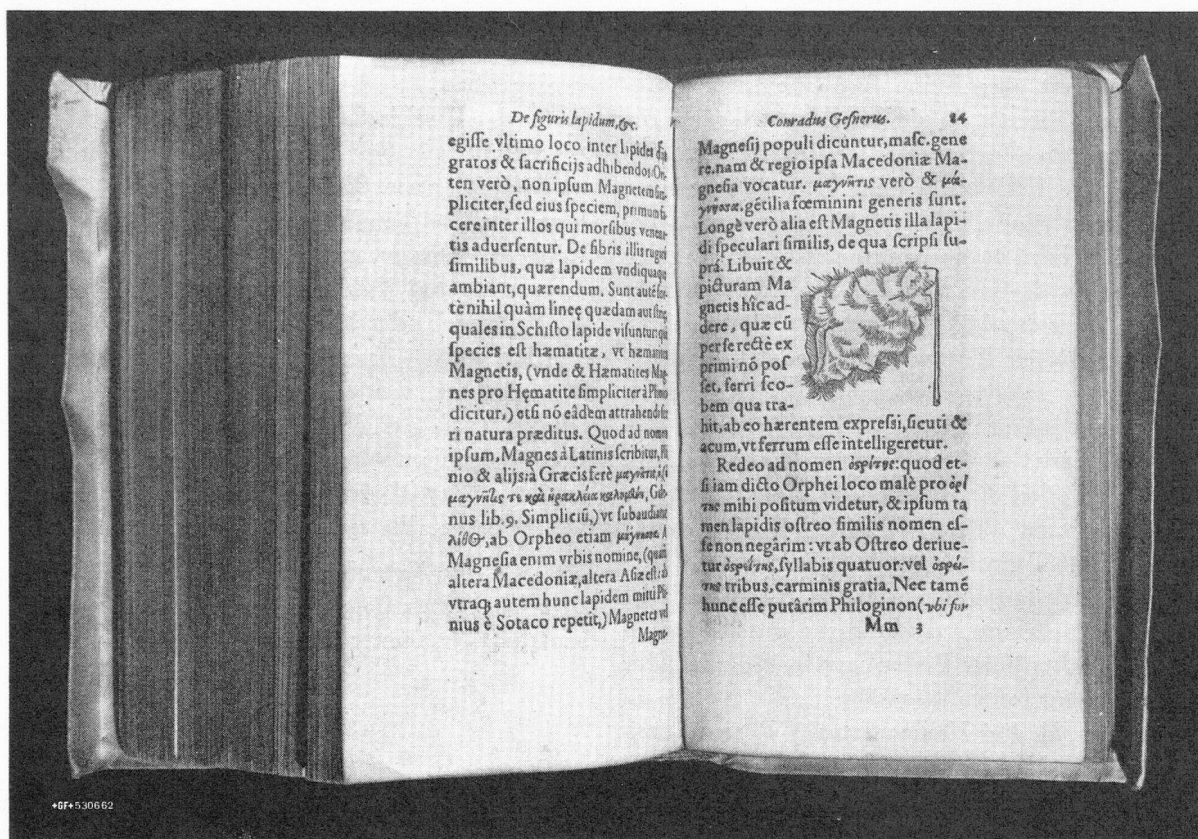 De figuris lapidum, &c.
egisse vltimo loco inter lapides
gratos & sacrificijs adhibendos:
ten verò, non ipsum Magnetem
pliciter, sed eius speciem, primum
cere inter illos qui morsibus
tis aduersentur. De fibris illis
similibus, quæ lapidem vndiquaque
ambiant, quærendum. Sunt autē
tè nihil quàm lineę quædam aut
quales in Schisto lapide visuntur:
species est hæmatitæ, vt hæmatites
Magnetis, (vnde & Hæmatites
nes pro Hęmatite simpliciter à
dicitur,) etsi nō eâdem attrahendi
ri natura præditus. Quod ad nomen
ipsum, Magnes à Latinis scribitur,
nio & alijs: à Græcis ferè μαγνῆτις,
μαγνῆτις τε καὶ ἡρακλεία καλουμένη,
nus lib. 9. Simpliciū,) vt subaudiatur
λίθος, ab Orpheo etiam μάγνησσα.
Magnesia enim vrbis nomine, (quarū
altera Macedoniæ, altera Asiæ est:
vtraq; autem hunc lapidem mitti
nius è Sotaco repetit,) Magnetes vel
Magne-
Conradus Gesnerus. 84
Magnesij populi dicuntur, masc. gene
re. nam & regio ipsa Macedoniæ Ma-
gnesia vocatur. μαγνῆτις verò & μά-
γνησσα. gētilia fœminini generis sunt.
Longè verò alia est Magnetis illa lapi-
di speculari similis, de qua scripsi su-
prá. Libuit &
picturam Ma
gnetis hîc ad-
dere, quæ cū
per se rectè ex
primi nō pos
set, ferri sco-
bem qua tra-
hit, ab eo hærentem expressi, sicuti &
acum, vt ferrum esse intelligeretur.
Redeo ad nomen ὀσρίτης: quod et-
si iam dicto Orphei loco malè pro ὀρί
της mihi positum videtur, & ipsum ta
men lapidis ostreo similis nomen es-
se non negârim: vt ab Ostreo deriue-
tur syllabis quatuor: vel
tribus, carminis gratia. Nec tamē
hunc esse putârim Philoginon (vbi for
Mm 3
+GF+530662